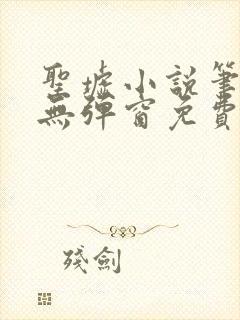 聖墟小說筆
無彈窗免費
殘劍